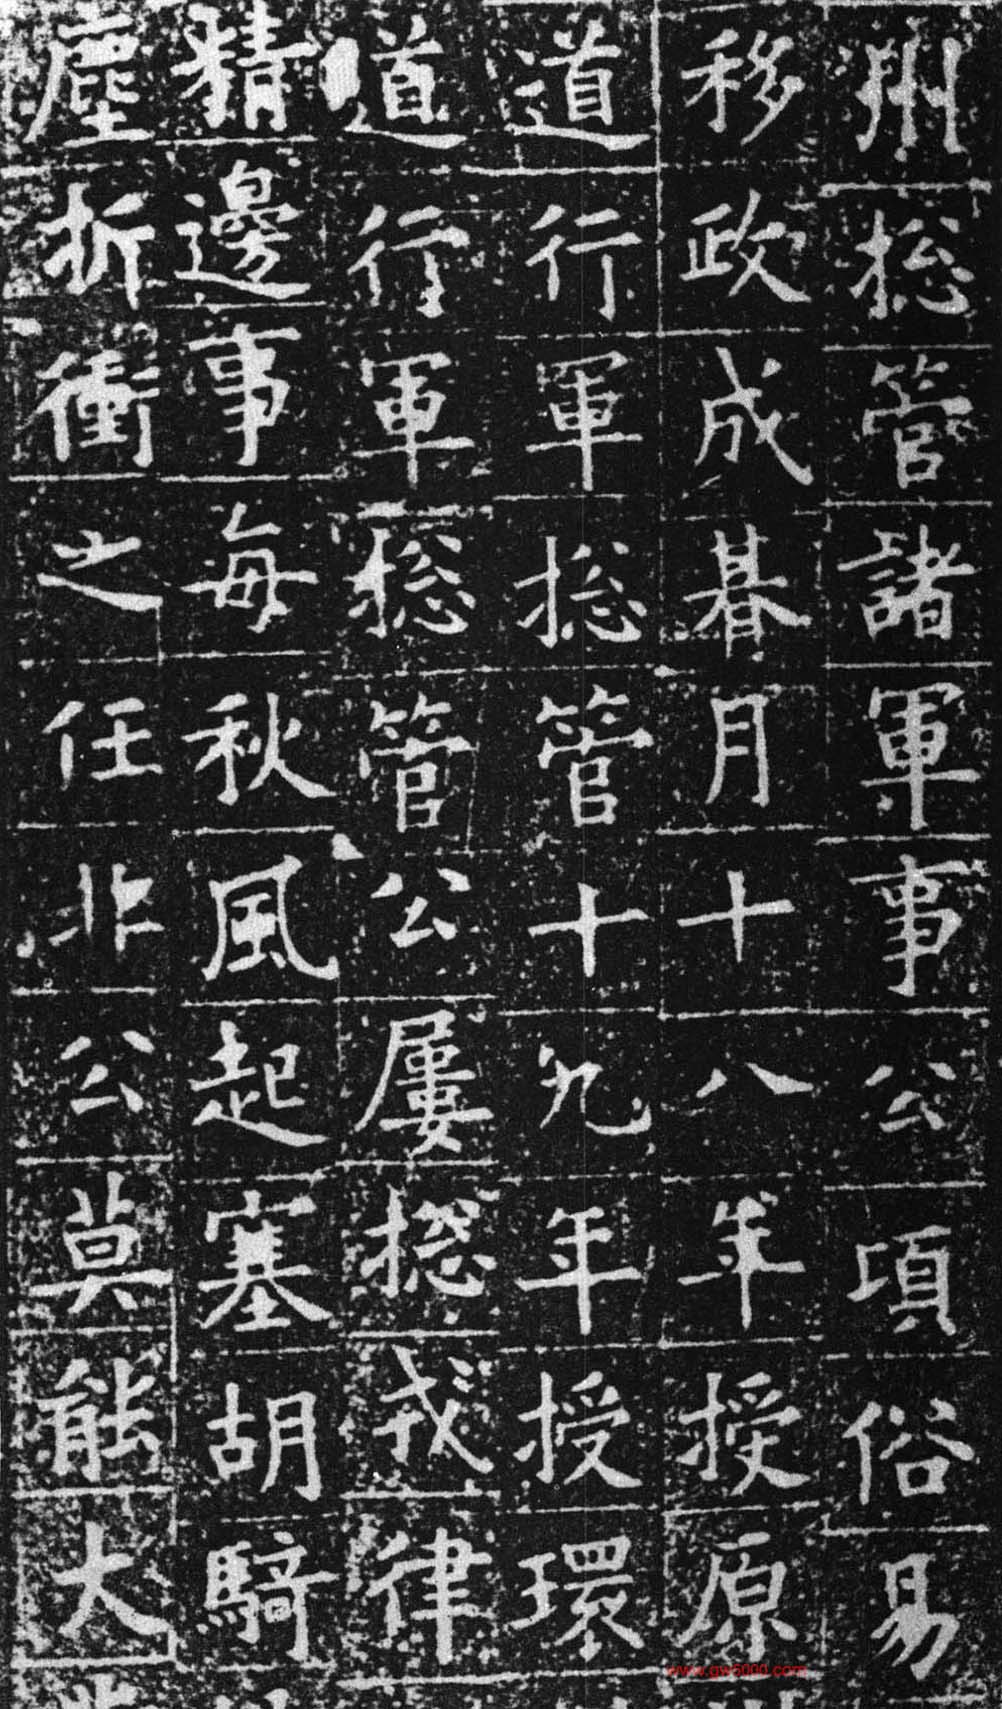 州捴管諸軍事公項俗易
移政成朞月十八年授原
道行軍捴管十九年授環
道行軍捴管公屢捴戎律
精邊事每秋風起塞胡騎
塵折衝之任非公莫能大
www.gw0000.com